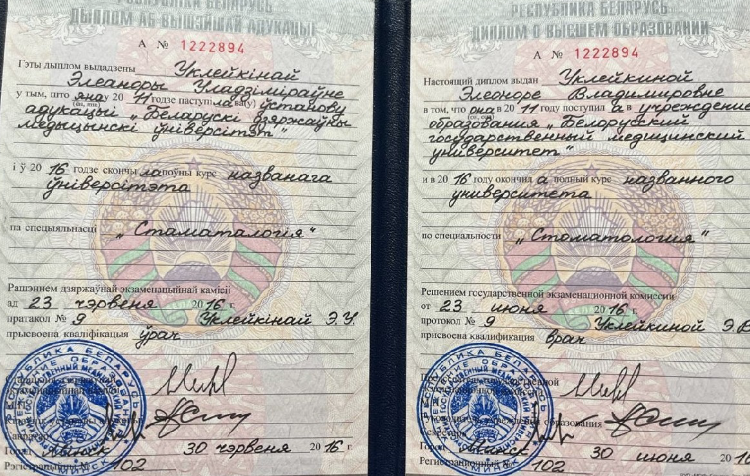 РЭСПУБЛІКА БЕЛАРУСЬ
ДЫПЛОМ АБ ВЫШЭЙШАЙ АДУКАЦЫІ
А № 1222894
Гэты дыплом выдадзены Уклейкінай
Элеаноры Уладзіміраўне
у тым, што яна у 20 11 годзе паступіла ва ўстанову
адукацыі „Беларускі дзяржаўны
медыцынскі ўніверсітэт"
і ў 20 16 годзе скончыла поўны курс названага
ўніверсітэта
па спецыяльнасці „Стаматалогія"
Рашэннем дзяржаўнай экзаменацыйнай камісіі
ад 23 чэрвеня 20 16 г.
пратакол № 9 Уклейкінай Э.У
прысвоена кваліфікацыя ўрач
Горад Мінск 30 чэрвеня 20 16 г.
Рэгістрацыйны № 102
РЕСПУБЛИКА БЕЛАРУСЬ
ДИПЛОМ О ВЫСШЕМ ОБРАЗОВАНИИ
А № 1222894
Настоящий диплом выдан Уклейкиной
Элеоноре Владимировне
в том, что она в 20 11 году поступила в учреждение
образования „Белорусский
государственный медицинский
университет"
и в 20 16 году окончила полный курс названного
университета
по специальности „Стоматология"
Решением государственной экзаменационной комиссии
от 23 июня 20 16 г.
протокол № 9 Уклейкиной Э.В
присвоена квалификация врач
Город Минск 30 июня 20 16
Регистрационный № 102